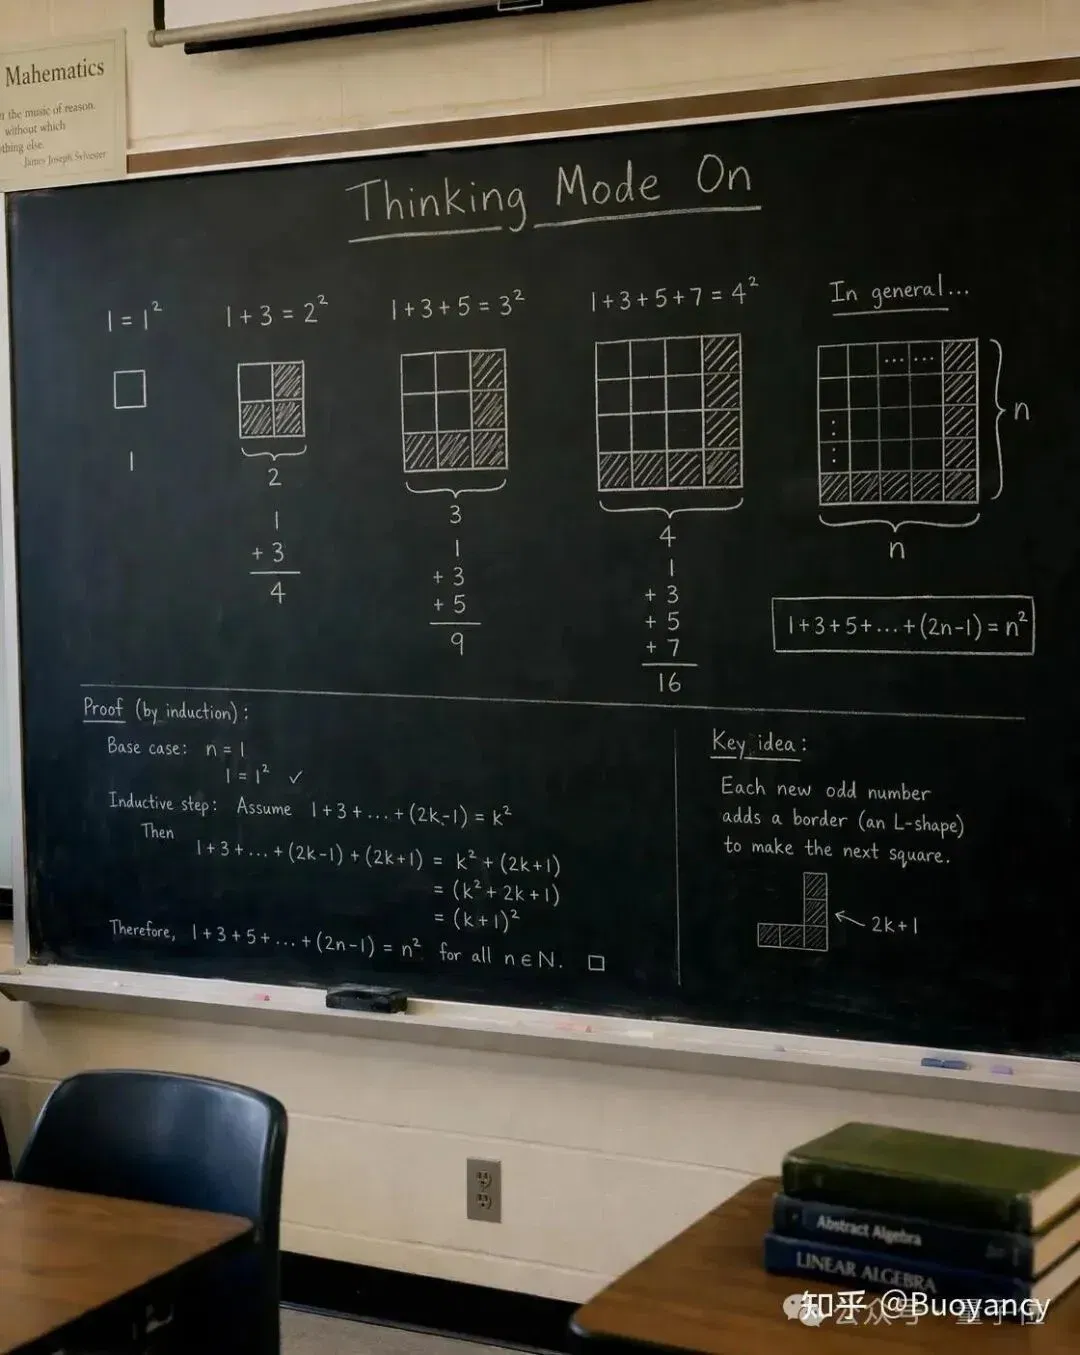 Mahematics
the music of reason.
without which
thing else.
James Joseph Sylvester
Thinking Mode On
1 = 1²
1
1 + 3 = 2²
2
1
+ 3
4
1 + 3 + 5 = 3²
3
1
+ 3
+ 5
9
1 + 3 + 5 + 7 = 4²
4
1
+ 3
+ 5
+ 7
16
In general...
n
n
1 + 3 + 5 + ... + (2n-1) = n²
Proof (by induction):
Base case: n = 1
1 = 1² ✓
Inductive step: Assume 1 + 3 + ... + (2k-1) = k²
Then
1 + 3 + ... + (2k-1) + (2k+1) = k² + (2k+1)
= (k² + 2k + 1)
= (k+1)²
Therefore, 1 + 3 + 5 + ... + (2n-1) = n² for all n ∈ N. □
Key idea:
Each new odd number
adds a border (an L-shape)
to make the next square.
2k+1
Abstract Algebra
LINEAR ALGEBRA
知乎 @Buoyancy
公众号 量子位